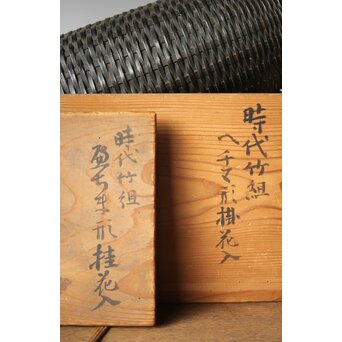 時代竹組
ヘチマ形掛花入
時代竹組
ちま形挂花入